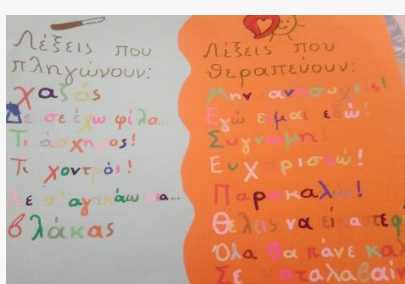 Λέξεις που
πληγώνουν:
χαζός
Δε σε έχω φίλο...
Τι άσχημος!
Τι χοντρός!
Δε σ' αγαπάω πια...
βλάκας
Λέξεις που
θεραπεύουν:
Μην ανησυχείς!
Εγώ είμαι εδώ!
Συγνώμη!
Ευχαριστώ!
Παρακαλώ!
Θέλεις να είμαστε φ
Όλα θα πάνε καλ
Σε καταλαβαίν